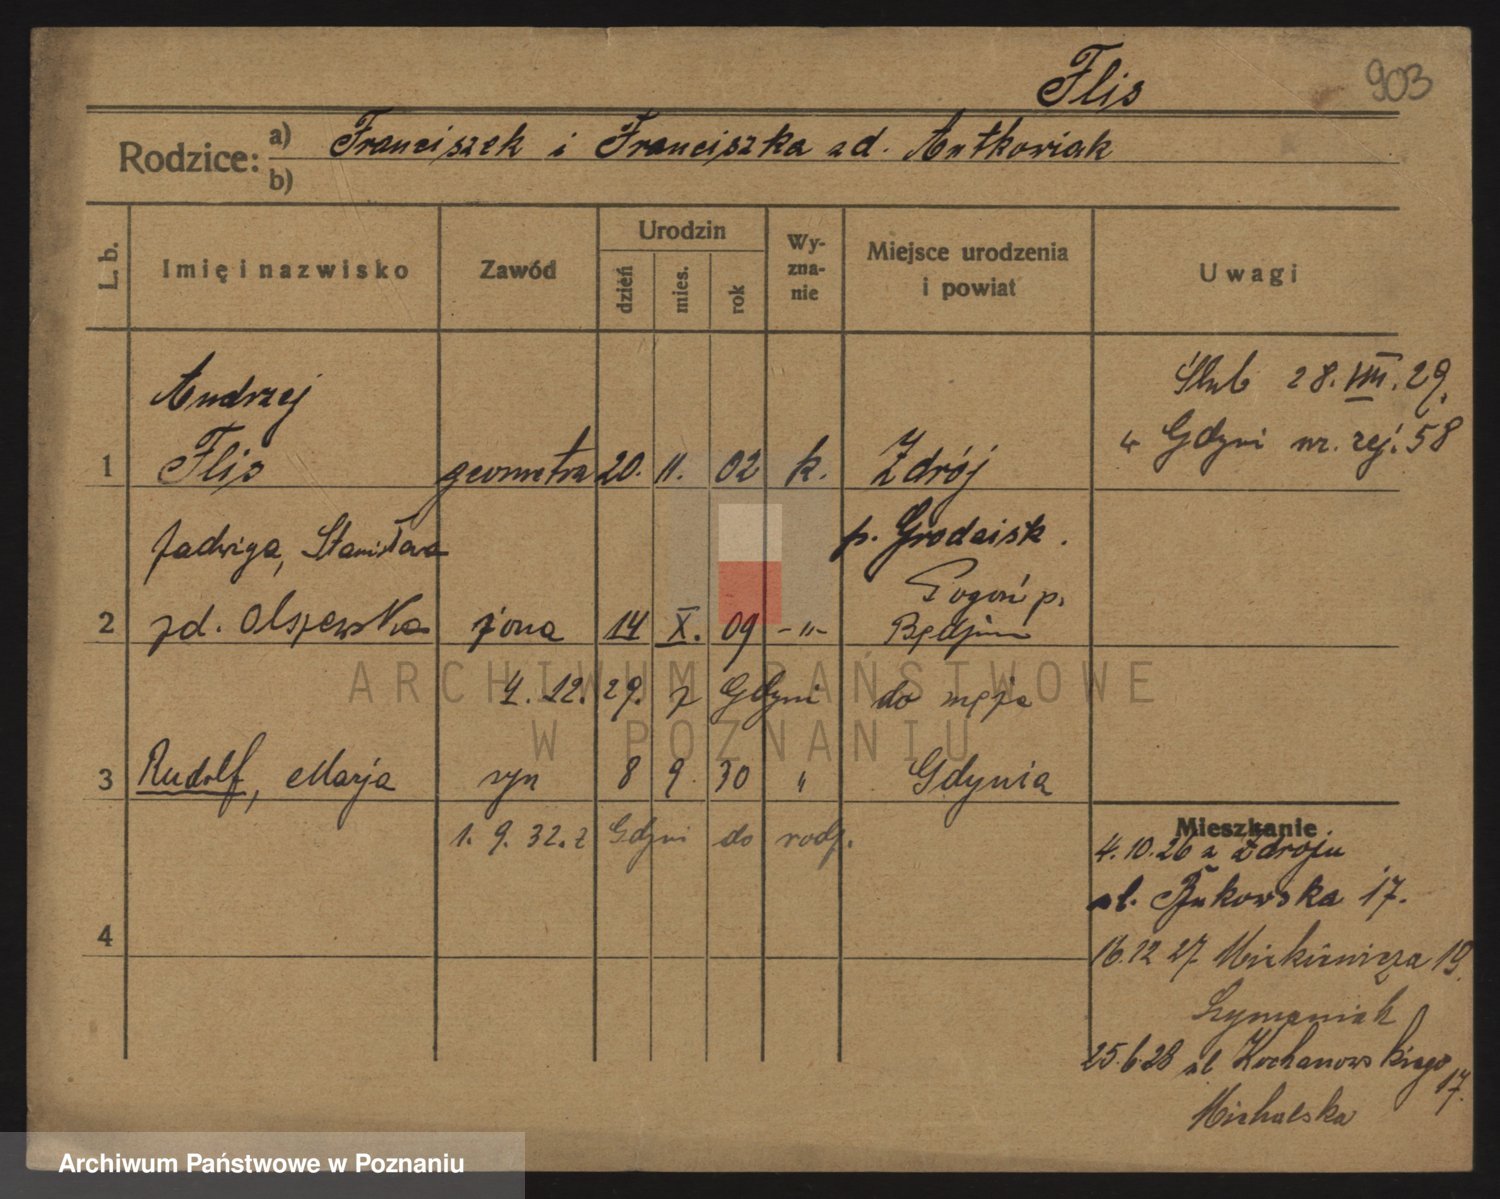 Flis
903
Rodzice:
a) Franciszek i Franciszka zd. Antkowiak
b)
L. b.
Imię i nazwisko
Zawód
Urodzin
dzień
mies.
rok
Wy-
zna-
nie
Miejsce urodzenia
i powiat
Uwagi
Andrzej
1 Flis geometra 20. 11. 02 k. Zdrój
p. Grodzisk.
Ślub 28. VIII. 29.
w Gdyni nr. rej. 58
Jadwiga, Stanisława
2 zd. Olszewska żona 14 X. 09 -"- Pogoń p.
Będzin
4. 12. 29. z Gdyni do męża
3 Rudolf, Marja syn 8 9. 30 " Gdynia
1. 9. 32. z Gdyni do rodz.
4
Mieszkanie
4.10.26 z Zdroju
ul. Bukowska 17.
16.12 27 Mickiewicza 19.
Szymaniak
25.6.28 ul Kochanowskiego 17.
Michalska
ARCHIWUM PAŃSTWOWE
W POZNANIU
Archiwum Państwowe w Poznaniu